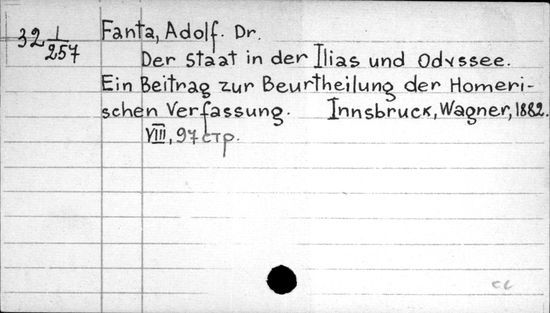 32 1/257
Fanta, Adolf. Dr.
Der Staat in der Ilias und Odyssee.
Ein Beitrag zur Beurtheilung der Homeri-
schen Verfassung. Innsbruck, Wagner, 1882.
VIII, 97 стр.